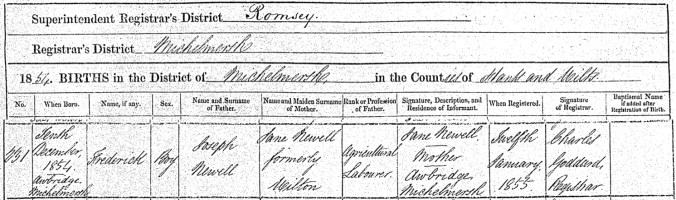 Superintendent Registrar's District Romsey.
Registrar's District Michelmersh
1854. BIRTHS in the District of Michelmersh in the Counties of Hants and Wilts
No. When Born. Name, if any. Sex. Name and Surname of Father. Name and Maiden Surname of Mother. Rank or Profession of Father. Signature, Description, and Residence of Informant. When Registered. Signature of Registrar. Baptismal Name if added after Registration of Birth.
Tenth December, 1854 Awbridge Michelmersh
Frederick
Boy
Joseph Newell
Jane Newell formerly Wilton
Agricultural Labourer.
Jane Newell. Mother Awbridge. Michelmersh
Twelfth January, 1855
Charles Goddard, Registrar.